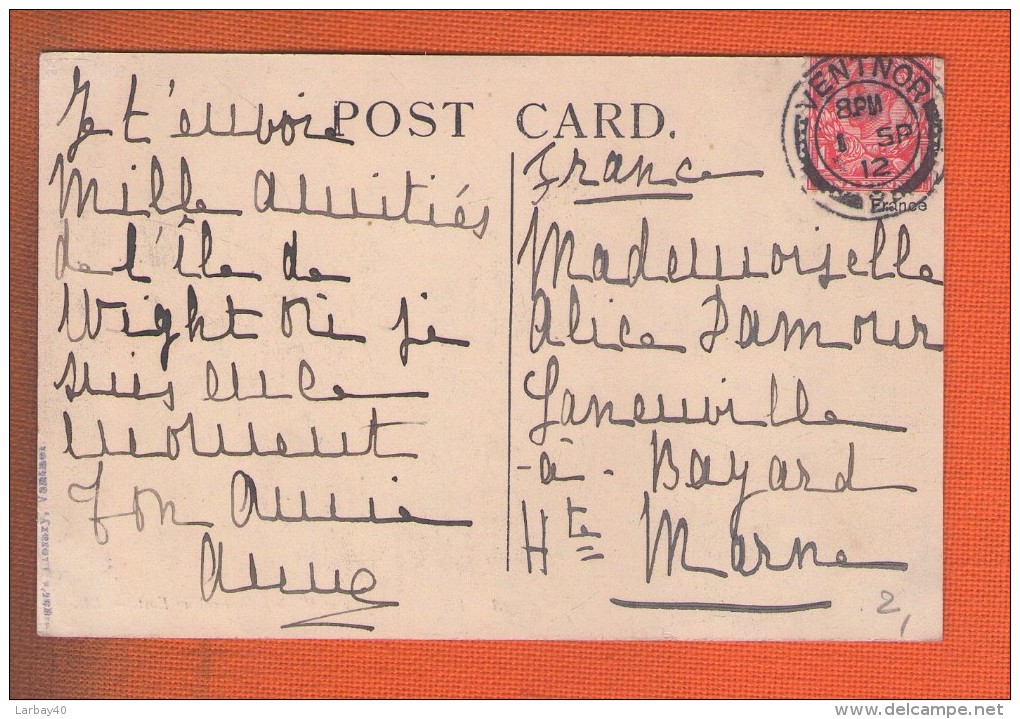 POST CARD.
VENTNOR
8PM
1 SP
12
France
Je t'envoie
Mille amitiés
de l'Île de
Wight où je
suis en ce
moment
Ton amie
Anne
France
Mademoiselle
Alice Damour
Laneuville
-à- Bayard
Hte Marne
2,
Larbay40
delcampe.net